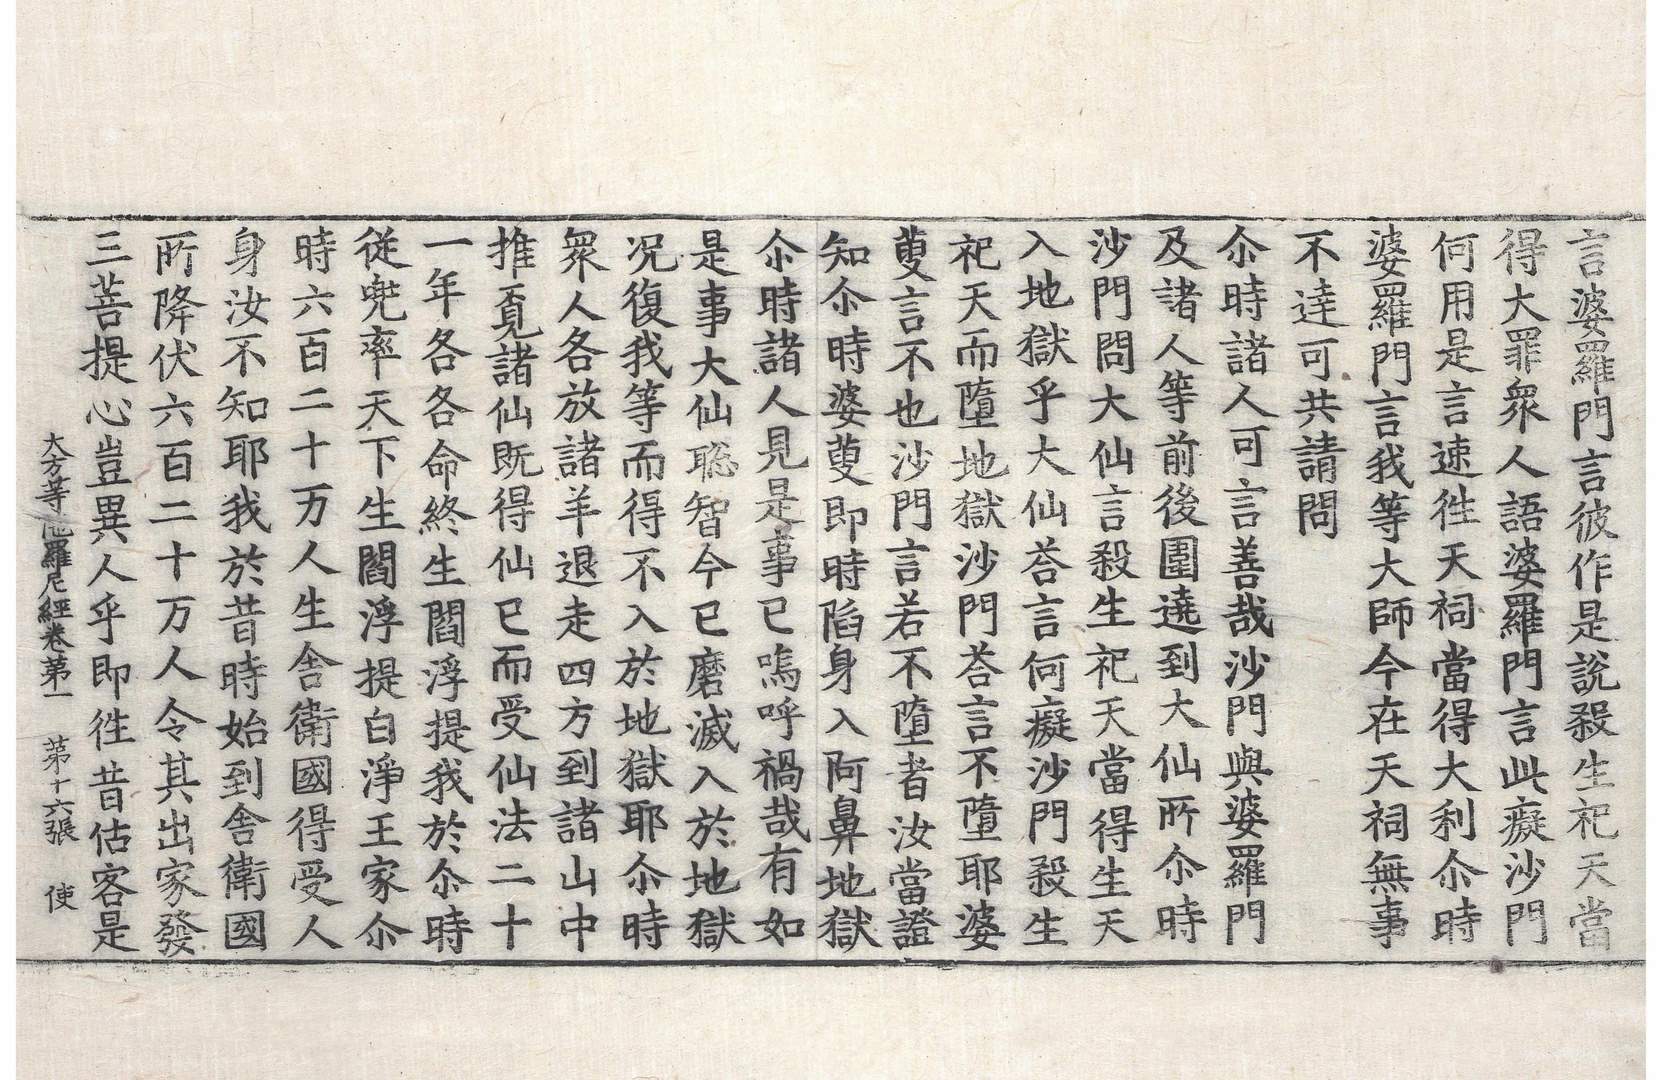 言婆羅門言彼作是說殺生祀天當
得大罪衆人語婆羅門言此癡沙門
何用是言速徃天祠當得大利尒時
婆羅門言我等大師今在天祠無事
不達可共請問
尒時諸人可言善哉沙門與婆羅門
及諸人等前後圍遶到大仙所尒時
沙門問大仙言殺生祀天當得生天
入地獄乎大仙荅言何癡沙門殺生
祀天而墮地獄沙門荅言不墮耶婆
藪言不也沙門言若不墮者汝當證
知尒時婆藪即時陷身入阿鼻地獄
尒時諸人見是事已嗚呼禍哉有如
是事大仙聡智今已磨滅入於地獄
况復我等而得不入於地獄耶尒時
衆人各放諸羊退走四方到諸山中
推覔諸仙既得仙已而受仙法二十
一年各各命終生閻浮提我於尒時
從兜率天下生閻浮提白淨王家尒
時六百二十万人生舍衛國得受人
身汝不知耶我於昔時始到舍衛國
所降伏六百二十万人令其出家發
三菩提心豈異人乎即徃昔估客是
大方等陁羅尼經卷第一　第十六張　使